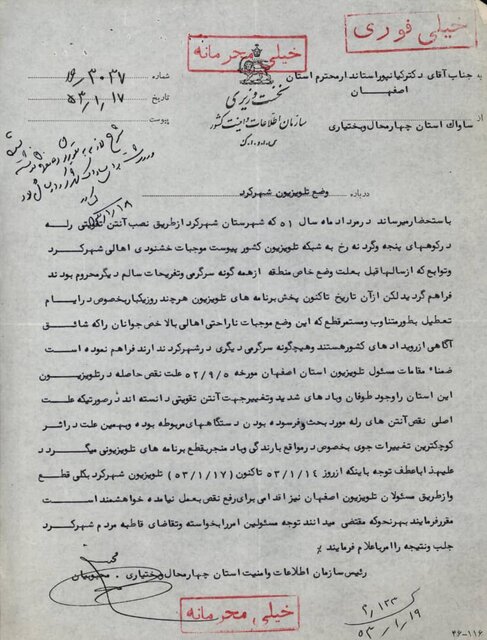 خیلی فوری
خیلی محرمانه
به جناب آقای دکتر کیانپور استاندار محترم استان
اصفهان
از ساواک استان چهارمحال وبختیاری
نخست وزیری
سازمان اطلاعات و امنیت کشور
س.ا.و.ا.ک
شماره ۳۰۳۷
تاریخ ۵۳/۱/۱۷
پیوست
۵۳/۱/۱۸
درباره وضع تلویزیون شهرکرد
باستحضار میرساند در مرداد ماه سال ۵۱ که شهرستان شهرکرد از طریق نصب آنتن تقویتی رله
در کوههای پنجه وگرد نه رخ به شبکه تلویزیون کشور پیوست موجبات خشنودی اهالی شهرکرد
وتوابع که از سالها قبل بعلت وضع خاص منطقه از همه گونه سرگرمی وتفریحات سالم دیگر محروم بودند
فراهم گردید لکن از آن تاریخ تاکنون پخش برنامه های تلویزیون هرچند روز یکبار بخصوص در ایام
تعطیل بطور متناوب ومستمر قطع که این وضع موجبات ناراحتی اهالی بالاخص جوانان را که شائق
آگاهی از رویدادهای کشور هستند وهیچگونه سرگرمی دیگری در شهرکرد ندارند فراهم نموده است
ضمناً مقامات مسئول تلویزیون استان اصفهان مورخه ۵۲/۹/۵ علت نقص حاصله در تلویزیون
این استان را وجود طوفان وباد های شدید وتغییر جهت آنتن تقویتی دانسته اند در صورتیکه علت
اصلی نقص آنتن های رله مورد بحث وفرسوده بودن دستگاههای مربوطه بوده وبهمین علت در اثر
کوچکترین تغییرات جوی بخصوص در مواقع بارندگی وباد منجر بقطع برنامه های تلویزیونی میگردد
علیهذا با عطف توجه باینکه از روز ۵۳/۱/۱۴ تاکنون (۵۳/۱/۱۷) تلویزیون شهرکرد بکلی قطع
واز طریق مسئولان تلویزیون اصفهان نیز اقدامی برای رفع نقص بعمل نیامده خواهشمند است
مقرر فرمایند بهر نحو که مقتضی میدانند توجه مسئولین امر را بخواسته وتقاضای قاطبه مردم شهرکرد
جلب ونتیجه را امر باعلام فرمایند ٪
رئیس سازمان اطلاعات وامنیت استان چهارمحال وبختیاری . محبوبیان
خیلی محرمانه
۲/۱۲۳
۵۳/۱/۱۹
۴۶-۱۱۶